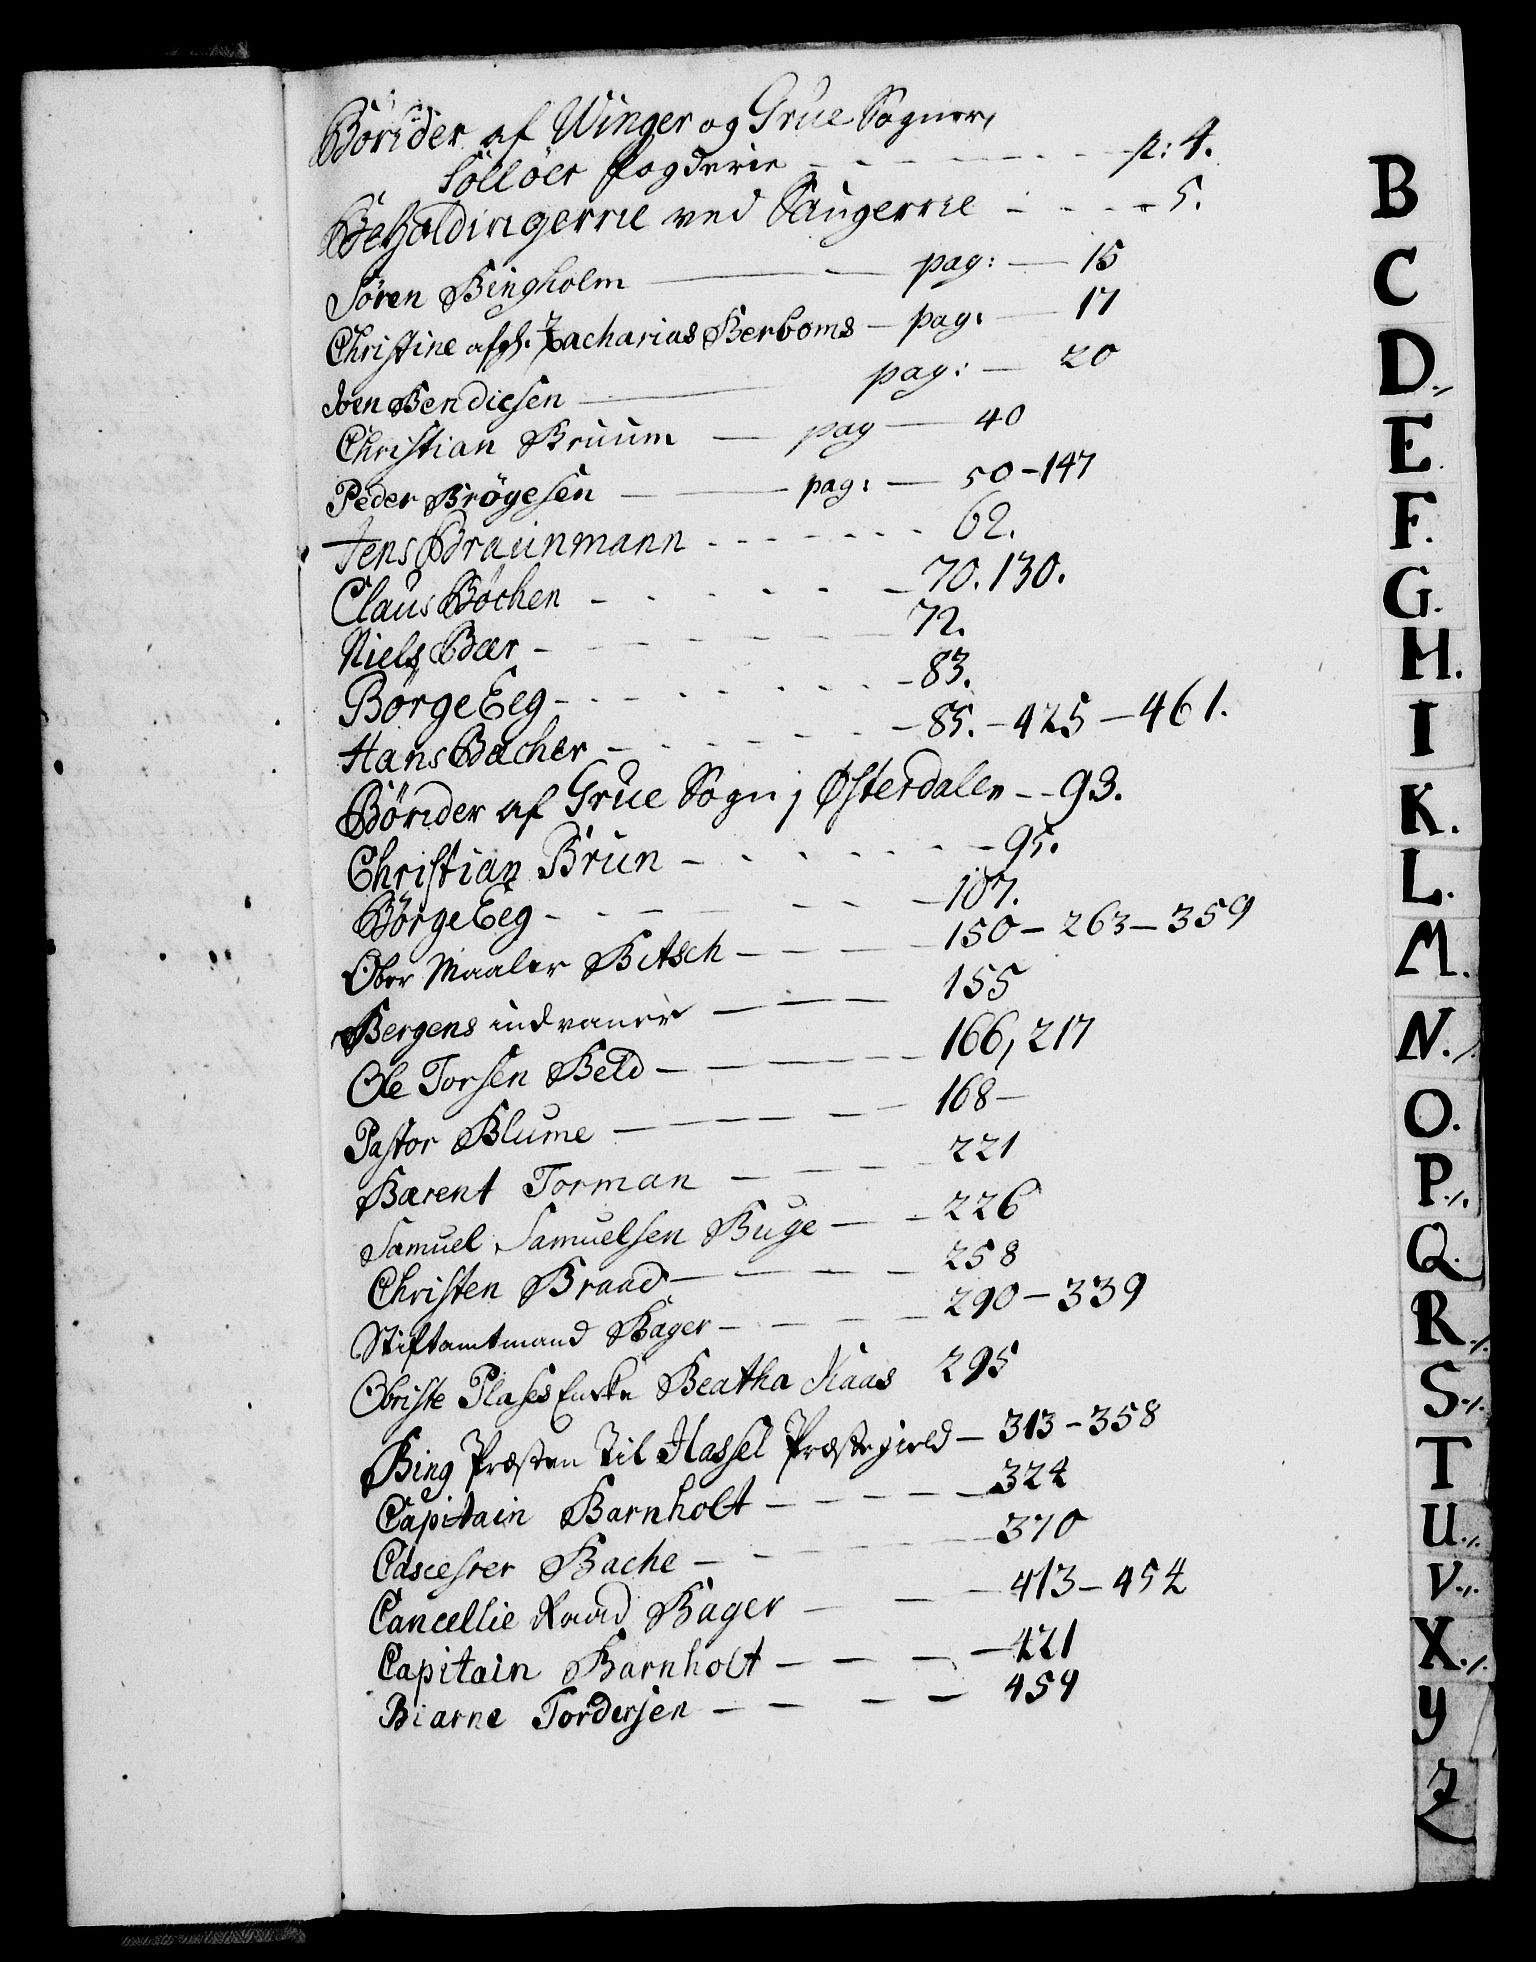 Bönder af Winger og Grue Sogner,
Sollöer fogderie - - - - - - - p: 4.
Beholdingerne ved Saugerne - - - - 5.
Sören Bingholm — — pag: — 15
Christine afg. Zacharias Berboms — pag: — 17
Iven Bendicsen — pag: — 20
Christian Bruum — pag — 40
Peder Brögesen — — pag: — 50-147
Jens Braunmann - - - - - - - 62.
Claus Böchen - - - - - - - 70. 130.
Niels Bær - - - - - - 72.
Börge Eeg - - - - - - - 83.
Hans Bacher - - - - - - - 85. - 425 - 461.
Bönder af Grue Sogn j Østerdalen - - 93.
Christian Brun - - - - - - - 95.
Börge Eeg - - - - - - 107.
Ober Maaler Bitsch - - - - 150 - 263 - 359
Bergens indvaaner — — — 155
Ole Torsen Beld - - - - - 166, 217
Pastor Blume - - - - - 168 -
Bærent Torman - - - - 221
Samuel Samuelsen Buge — - 226
Christen Braad - - - - - 258
Stiftamtmand Bager - - - - 290 - 339
Obriste Plases Encke Beatha Kaas 295
Bing Præsten til Hassel Præstegield — 313 - 358
Capitain Barnholt - - - - - 324
Bache - - - - - 370
Cancellie Raad Bager — — — 413 - 454
Capitain Barnholt - - - - 421
Biarne Tordersen - - - - 459
B
C
D./.
E.
F.
G.
H.
I
K.
L.
M.
N./.
O.
P./.
Q.
R./.
S./.
T
U./.
V./.
X./.
Y
Z